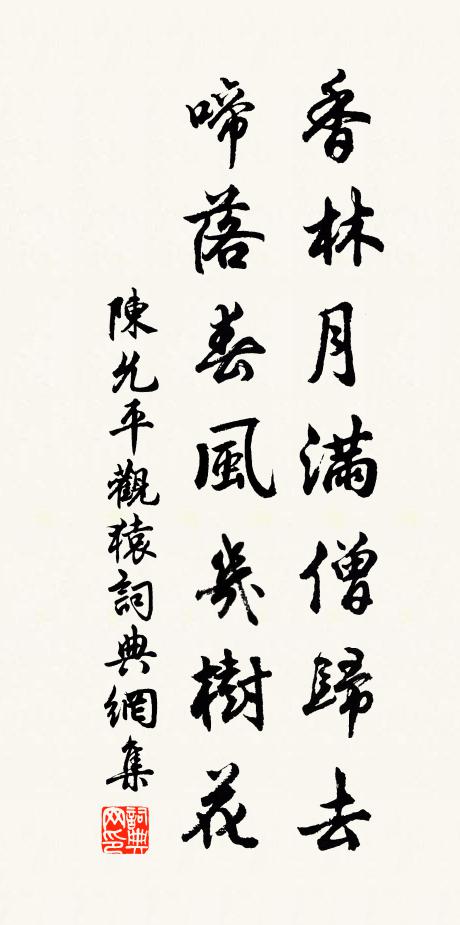 香林月滿僧歸去
啼落春風幾樹花
陳允平觀猿詞典網集
詞典网印